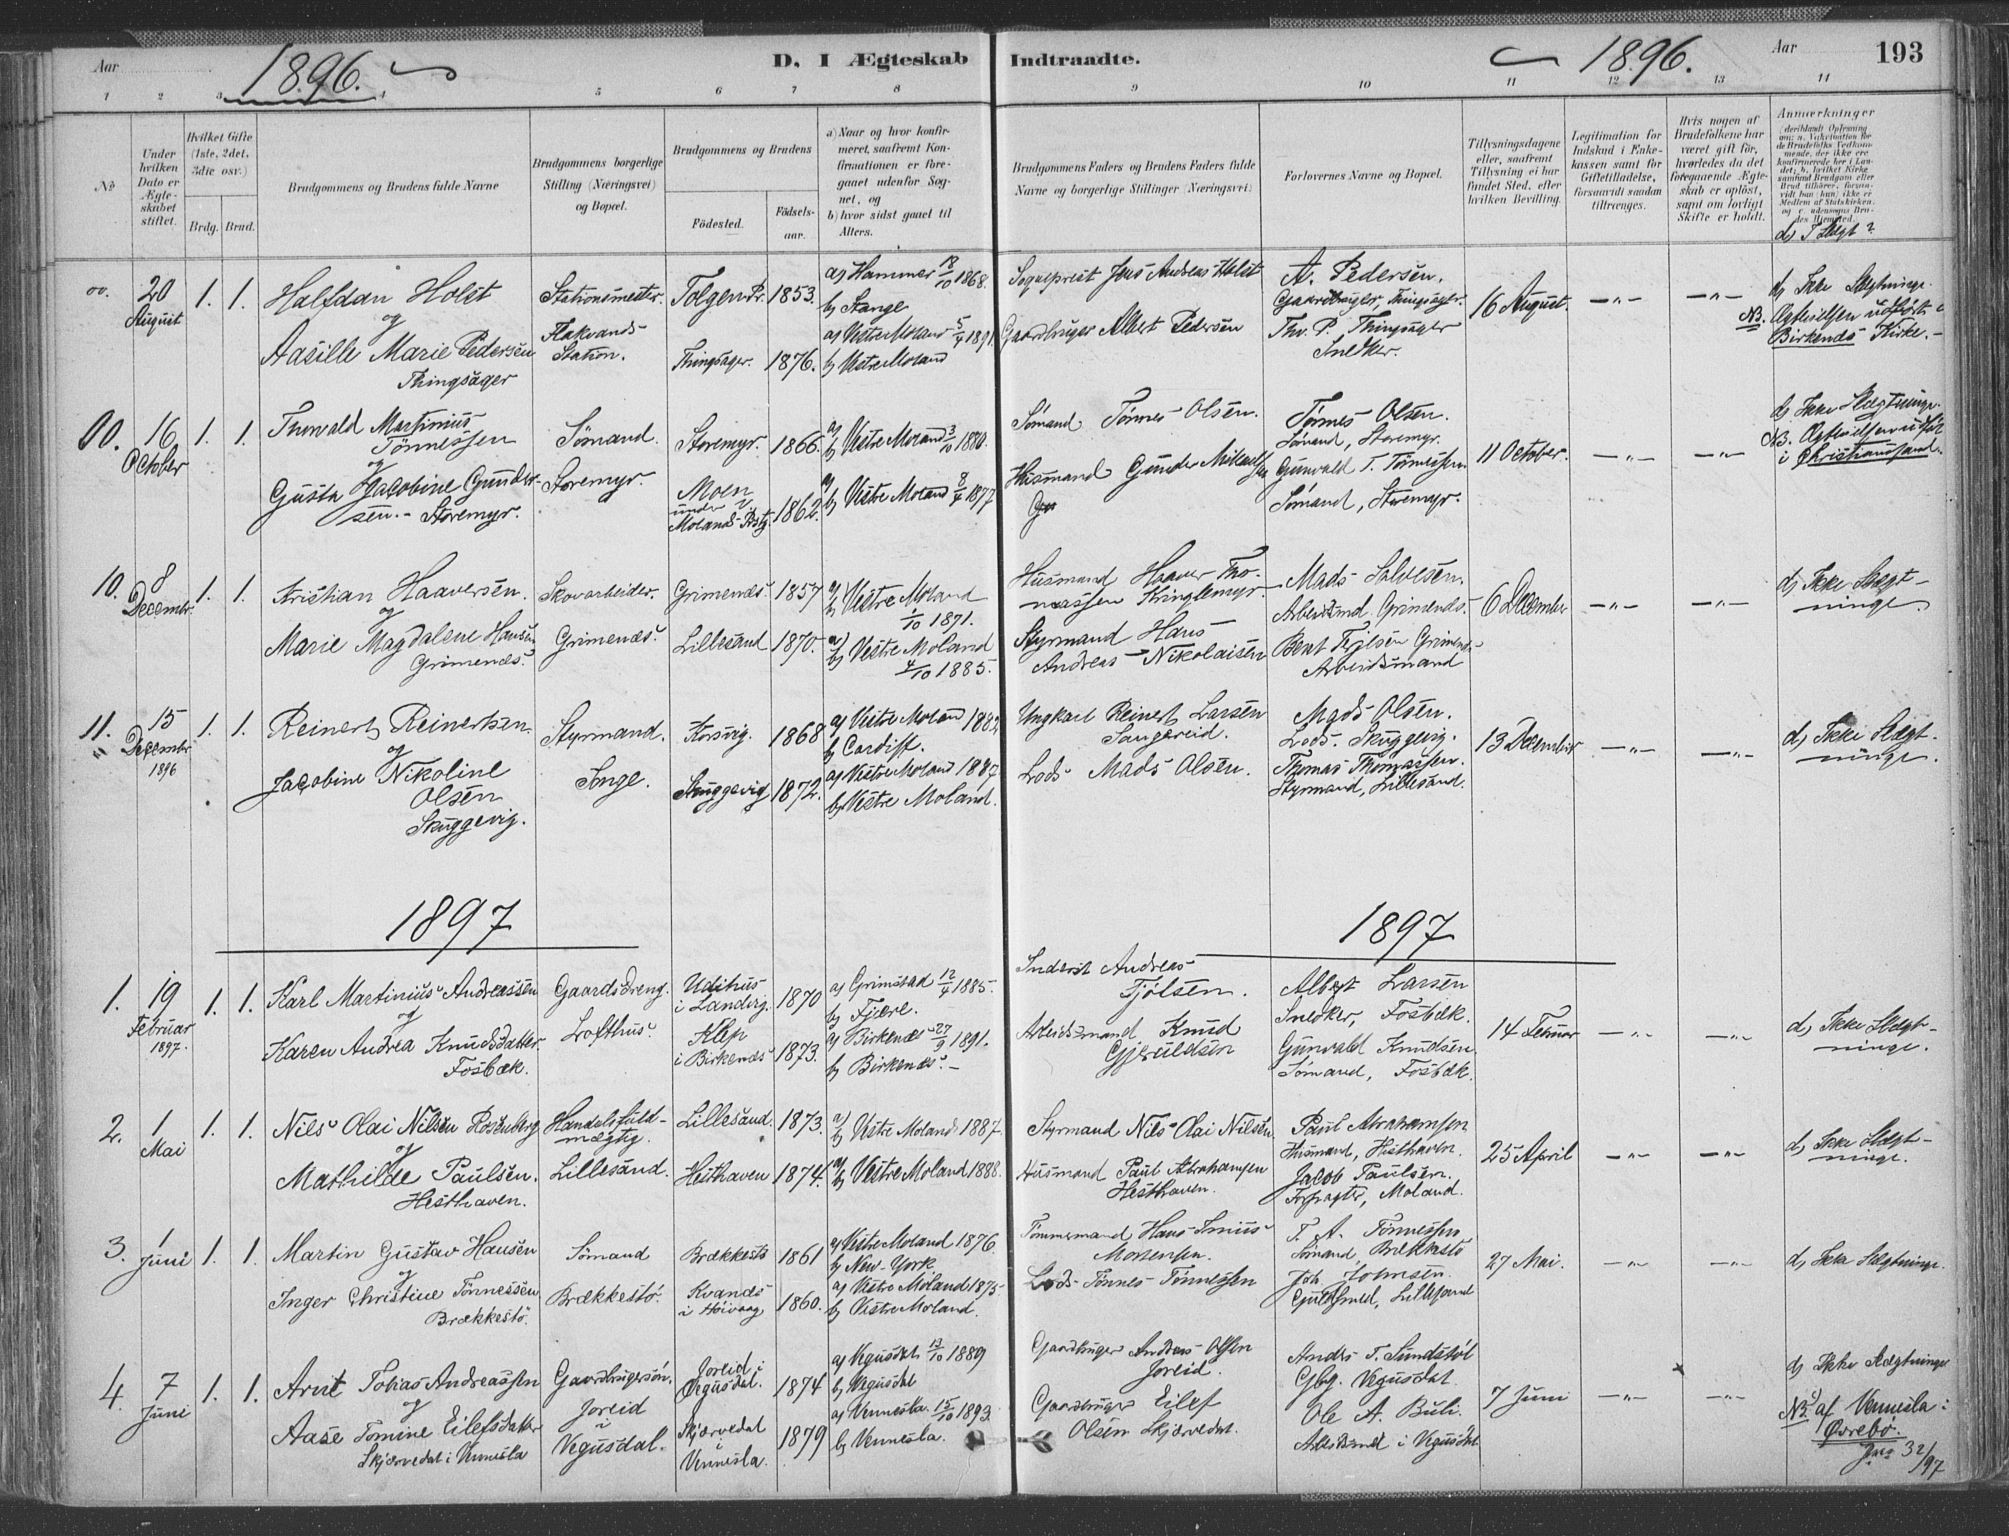 Aar 1896. D. I Ægteskab Indtraadte. 1896. Aar 193
1 2 3 4 5 6 7 8 9 10 11 12 13 14
No
Under hvilken Dato er Ægteskabet stiftet.
Hvilket Gifte (1ste, 2det, 3die osv.)
Brdg. Brud.
Brudgommens og Brudens fulde Navne
Brudgommens borgerlige Stilling (Næringsvei) og Bopæl.
Brudgommens og Brudens
Födested.
Födsels-aar.
a) Naar og hvor konfirmeret, saafremt Konfirmationen er foregaaet udenfor Sognet, og
b) hvor sidst gaaet til Alters.
Brudgommens Faders og Brudens Faders fulde Navne og borgerlige Stillinger (Næringsvei)
Forlovernes Navne og Bopæl.
Tillysningsdagene eller, saafremt Tillysning ei har fundet Sted, efter hvilken Bevilling.
Legitimation for Indskud i Enkekassen samt for Giftetilladelse, forsaavidt saadan tiltrænges.
Hvis nogen af Brudefolkene har været gift för, hvorledes da det foregaaende Ægteskab er oplöst, samt om lovligt Skifte er holdt.
Anmærkninger
d) I Slægt?
20 August
1. 1.
Halfdan Holst
og
Aasille Marie Pedersen
Thingsager
Stationsmester.
Flakvands-
Station.
Tolgen Pr. 1853.
Thingsager. 1876.
a) Hammer 18/10 1868.
b) Stange
a) Vestre Moland 5/4 1891.
b) Vestre Moland
Sognepræst Jens Andreas Holst
Gaardbruger Albert Pedersen
A. Pedersen.
Gaardbruger, Thingsager.
Thv. P. Thingsager
Snedker.
16 August.
d) Ikke Slægtninge.
NB. Agtevielsen udført i
Birkenes Kirke.
16 October
1. 1.
Thorvald Martinius
Tönnessen
og
Gusta Jacobine Gunder-
sen. - Storemyr.
Sömand.
Storemyr.
Storemyr. 1866.
Moen
under
Molands Prstg. 1862.
a) b) Vestre Moland 3/10 1880.
a) b) Vestre Moland 8/4 1877
Sömand Tönnes Olsen.
Husmand Gunder Mikaelsen
Tönnes Olsen.
Sömand, Storemyr.
Gunvald T. Tönnessen.
Sömand, Storemyr.
11 October.
d) Ikke Slægtninge.
NB. Agtevielsen udført
i Christianssand.
10. 8 Decembr.
1. 1.
Kristian Haaversen.
og
Marie Magdalene Hansen
Grimenes.
Skovarbeider.
Grimenes.
Grimenes. 1857
Lillesand 1870.
a) b) Vestre Moland
1/10 1871.
a) b) Vestre Moland
4/10 1885.
Husmand Haaver Tho-
massen Kringlemyr.
Styrmand Hans
Andreas Nikolaisen
Mads Salvesen.
Arbeidsmd. Grimenes.
Bent Terjesen Grimenes
Arbeidsmand
6 December
d) Ikke Slægt-
ninge.
11. 15 Decembr 1896
1. 1.
Reinert Reinertsen
og
Jacobine Nikoline
Olsen
Skuggevig.
Styrmand.
Inge.
Korsvig. 1868
Skuggevig 1872.
a) Vestre Moland 1882
b) Cardiff.
a) Vestre Moland 1887.
b) Vestre Moland.
Ungkarl Reinert Larsen
Sangereid.
Lods Mads Olsen.
Mads Olsen.
Lods. Skuggevig.
Thomas Thomassen.
Styrmand, Lillesand.
13 December
d) Ikke Slægt-
ninge.
1897 1897
1. 19 Februar 1897.
1. 1.
Karl Martinius Andreassen
og
Karen Andrea Knudsdatter
Fosbæk.
Gaardsdreng.
Lofthus.
Udihus
i Landvig. 1870
Klep
i Birkenes 1873.
a) Grimstad 12/4 1885.
b) Fjære.
a) Birkenæs 27/9 1891.
b) Birkenæs.
Inderst Andreas
Tjölsen.
Arbeidsmand Knud
Gjeruldsen
Albert Larsen
Snedker, Fosbæk.
Gunvald Knudsen.
Sömand, Fosbæk.
14 Februar
d) Ikke Slægt-
ninge.
2. 1 Mai
1. 1.
Nils Olai Nilsen Rosenberg
og
Mathilde Paulsen.
Hesthaven.
Handelsfuld-
mægtig.
Lillesand.
Lillesand. 1873.
Hesthaven 1874.
a) b) Vestre Moland 1887.
a) b) Vestre Moland 1888.
Styrmand Nils Olai Nilsen
Husmand Paul Abrahamsen
Hesthaven.
Paul Abrahamsen
Husmand, Hesthaven.
Jacob Paulsen.
Forpagter, Moland.
25 April
d) Ikke Slægt-
ninge.
3. 1 Juni
1. 1.
Martin Gustav Hansen
og
Inger Christine Tönnessen
Brækkestö.
Sömand
Brækkestö.
Brækkestö 1861
Kvanes
i Höivaag 1860.
a) Vestre Moland 1876.
b) New-York
a) Vestre Moland 1875
b) Vestre Moland.
Tömmermand Hans
Mortensen.
Lods Tönnes Tönnessen
T. A. Tönnessen
Sömand, Brækkestö
Joh. Holmsen.
Guldsmed, Lillesand
27 Mai.
d) Ikke Slægtninge.
4. 7 Juni
1. 1.
Arnt Tobias Andreassen
og
Aase Tomine Eilefsdatter
Skjærvedal i Vennesla
Gaardbrugersön.
Joreid
i
Vegusdal.
Joreid i
Vegusdal. 1874
Skjærvedal
i
Vennesla. 1879
a) Vegusdal 13/10 1889
b) Vegusdal
a) Vennesla. 15/10 1893.
b) Vennesla.
Gaardbruger Andreas Olsen
Joreid.
Gaardbruger Eilef
Olsen Skjærvedal.
Anders T. Sundstöl
Gbg. Vegusdal.
Ole A. Buli.
Arbeidsmd i Vegusdal
7 Juni
d) Ikke Slægtninge
NB. af Vennesla i
Øvrebø.
32/97